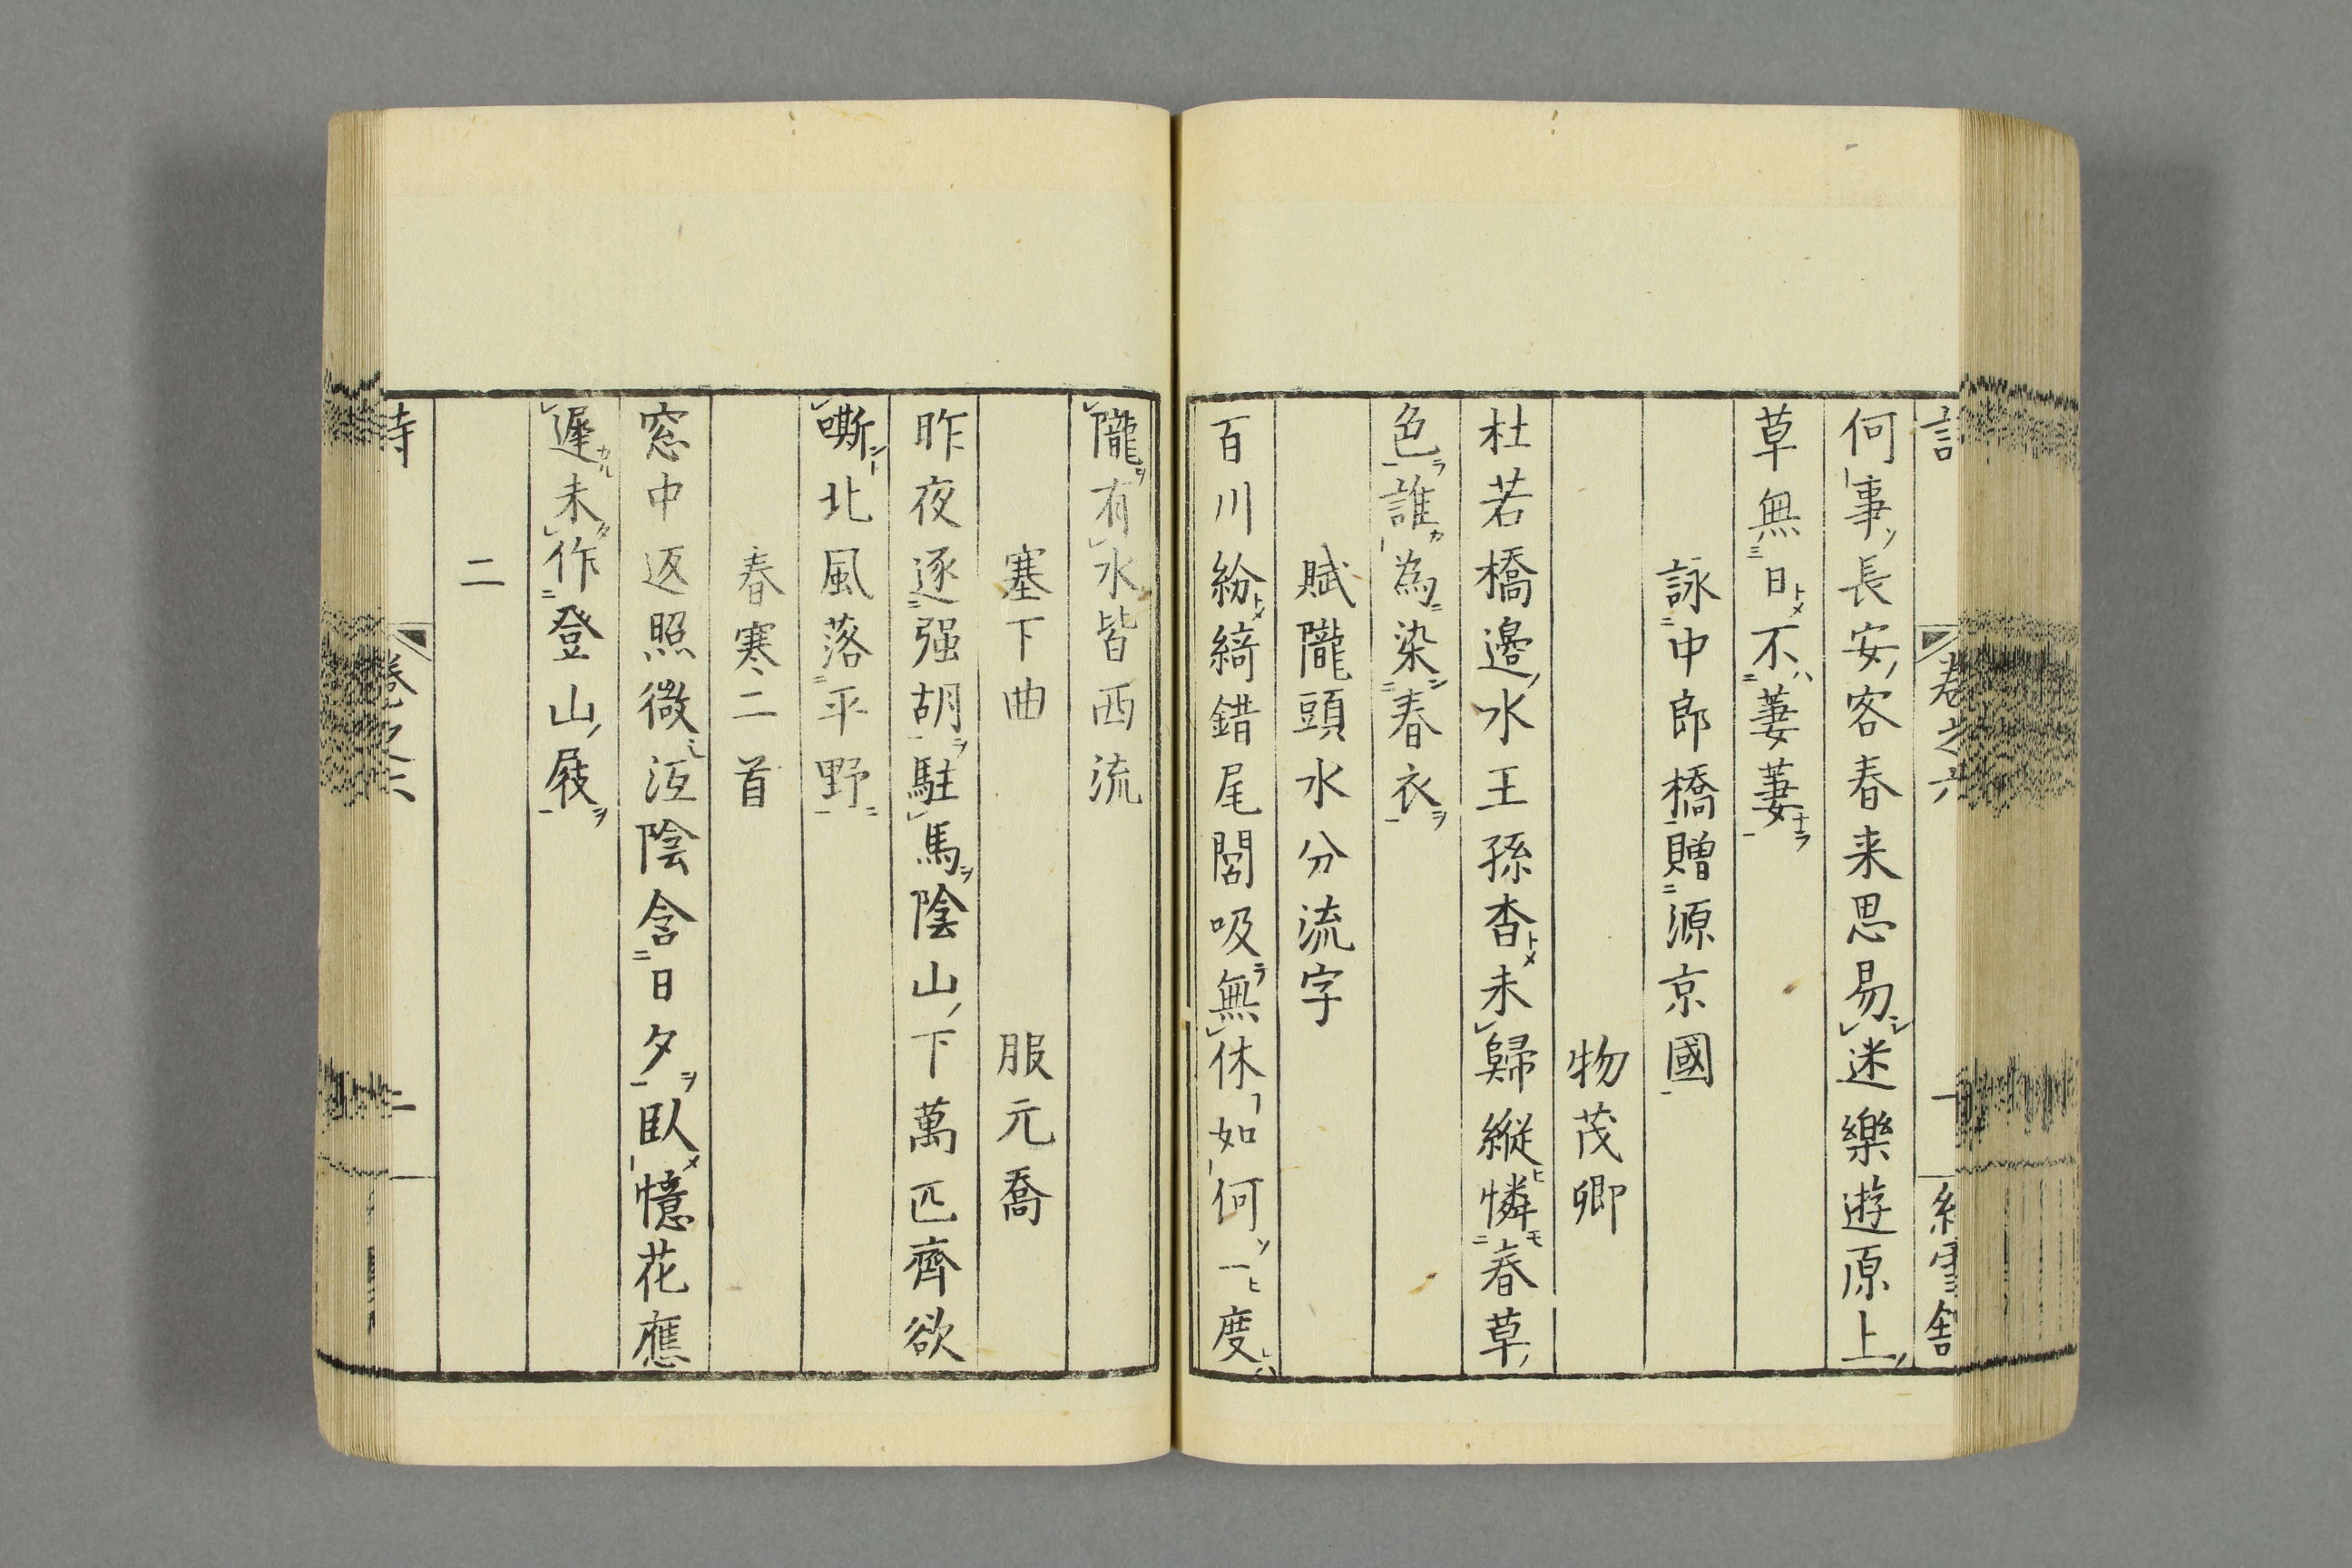 何事長安客春来思易迷樂遊原上
草無日不萋萋
詠中郎橋贈源京國
物茂卿
杜若橋邉水王孫杳未歸縱憐春草
色誰為染春衣
賦隴頭水分流字
百川紛綺錯尾閭吸無休如何一度
隴有水皆西流
塞下曲 服元喬
昨夜逐强胡駐馬陰山下萬匹齊欲
嘶北風落平野
春寒二首
窓中返照微沍陰含日夕臥憶花應
遲未作登山屐
二
卷之六